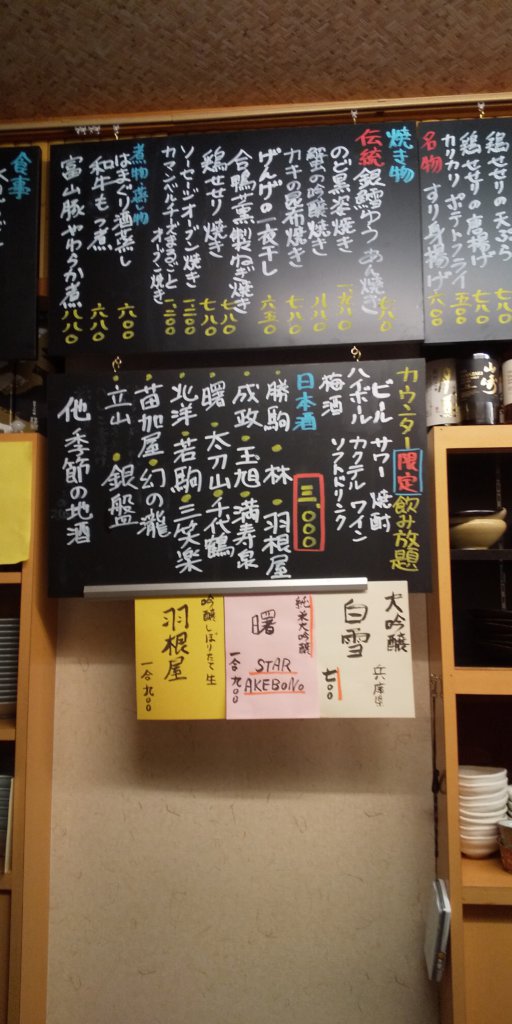 鶏せせりの天ぷら
鶏せせりの唐揚げ 七八〇
カリカリポテトフライ 五〇〇
名物 すり身揚げ 六〇〇
焼き物
伝統 銀鱈ゆうあん焼き 七八〇
のど黒姿焼き
蟹の吟醸焼き 八八〇
カキの昆布焼き 七八〇
げんげの一夜干し 六五〇
合鴨薫製ねぎ焼き 七八〇
鶏せせり焼き 七八〇
ソーセージオーブン焼き 一二〇〇
カマンベールチーズまるごとオーブン焼き 一二〇〇
煮物・蒸し物
はまぐり酒蒸し 六〇〇
和牛もつ煮 六八〇
富山豚やわらか煮 八八〇
食事
カウンター限定飲み放題
ビール サワー 焼酎
ハイボール カクテル ワイン
梅酒 ソフトドリンク
日本酒 三、〇〇〇
・勝駒・林・羽根屋
・成政・玉旭・満寿泉
・曙・太刀山・千代鶴
・北洋・若駒・三笑楽
・苗加屋・幻の瀧
・立山・銀盤
他 季節の地酒
大吟醸
白雪 兵庫県
七〇〇
純米大吟醸
曙 STAR
AKEBONO
一合 九〇〇
吟醸しぼりたて生
羽根屋
一合 九〇〇